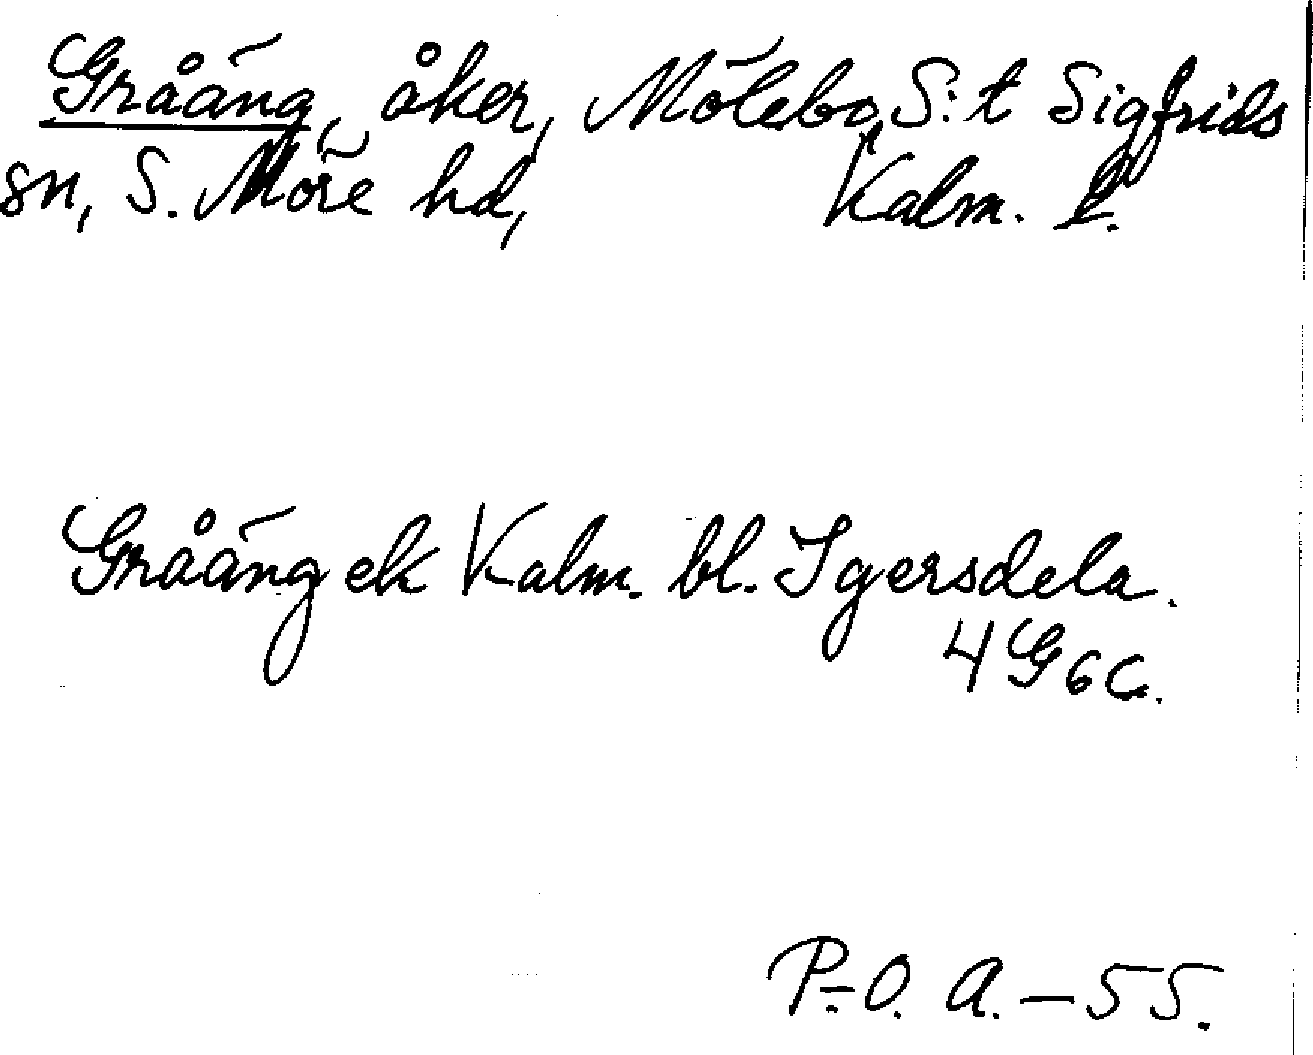 Gråäng, åker, Mölebo, S:t Sigfrids
sn, S. Möre hd, Kalm. l.
Gråäng ek Kalm. bl. Igersdela.
4G6c.
P-O. A. - 55.